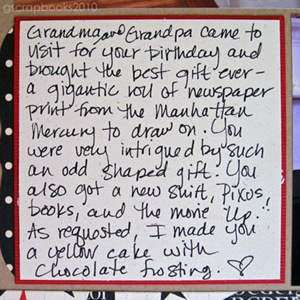 gscrapbooks2010
Grandma and Grandpa came to
visit for your birthday and
brought the best gift ever-
a gigantic roll of newspaper
print from the Manhattan
Mercury to draw on. You
were very intrigued by such
an odd shaped gift. You
also got a new shirt, Pixos,
books, and the movie "Up."
As requested, I made you
a yellow cake with
chocolate frosting. ♡